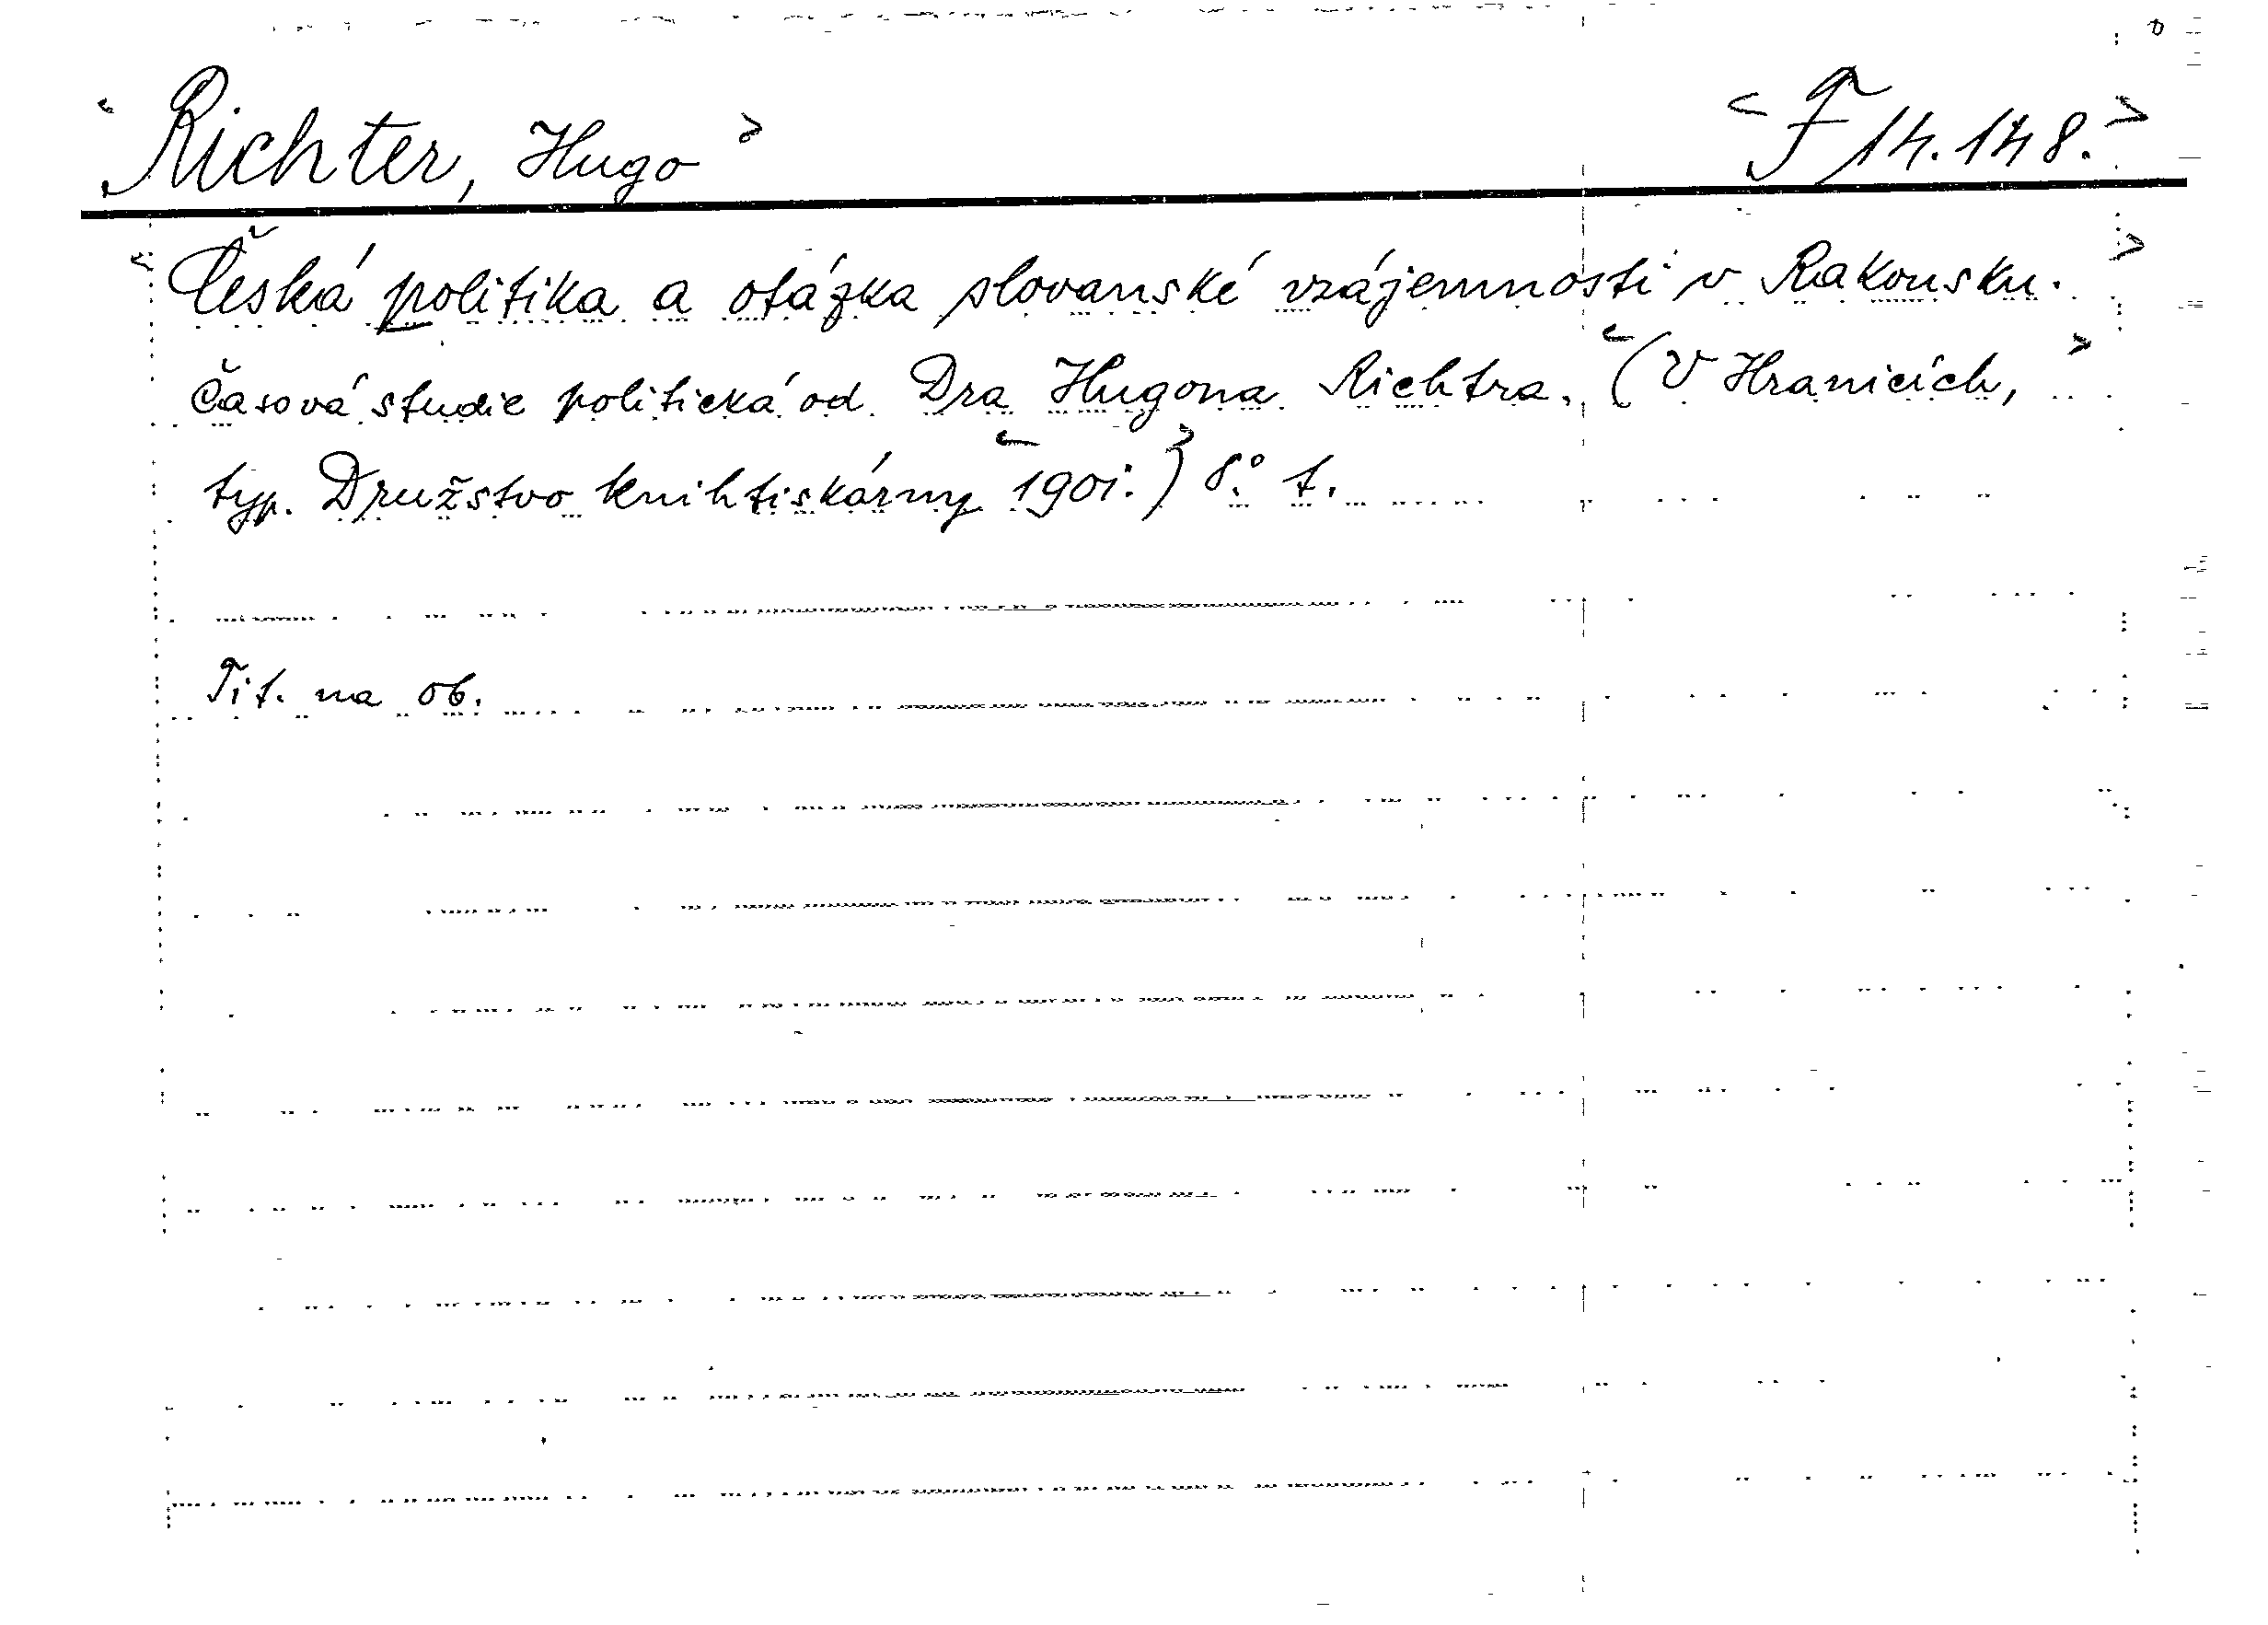 <Richter, Hugo> <F 14.148.>
<Česká politika a otázka slovanské vzájemnosti v Rakousku.>
Časová studie politická od Dra Hugona Richtra. <(V Hranicích,>
typ. Družstvo knihtiskárny <1901.)> 8.° t.
Tit. na ob.